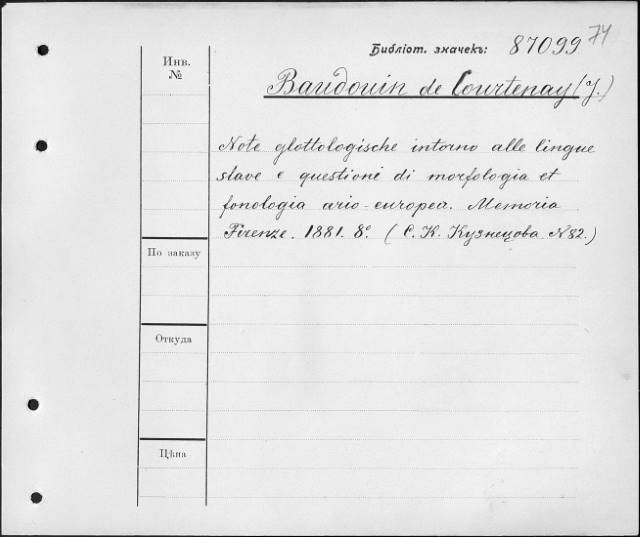 Библіот. значекъ: 87099 74
Инв.
№
Baudouin de Courtenay (J.)
Note glottologische intorno alle lingue
slave e questioni di morfologia et
fonologia ario-europea. Memoria
Firenze. 1881. 8º. (С. К. Кузнецова N 82.)
По заказу
Откуда
Цѣна